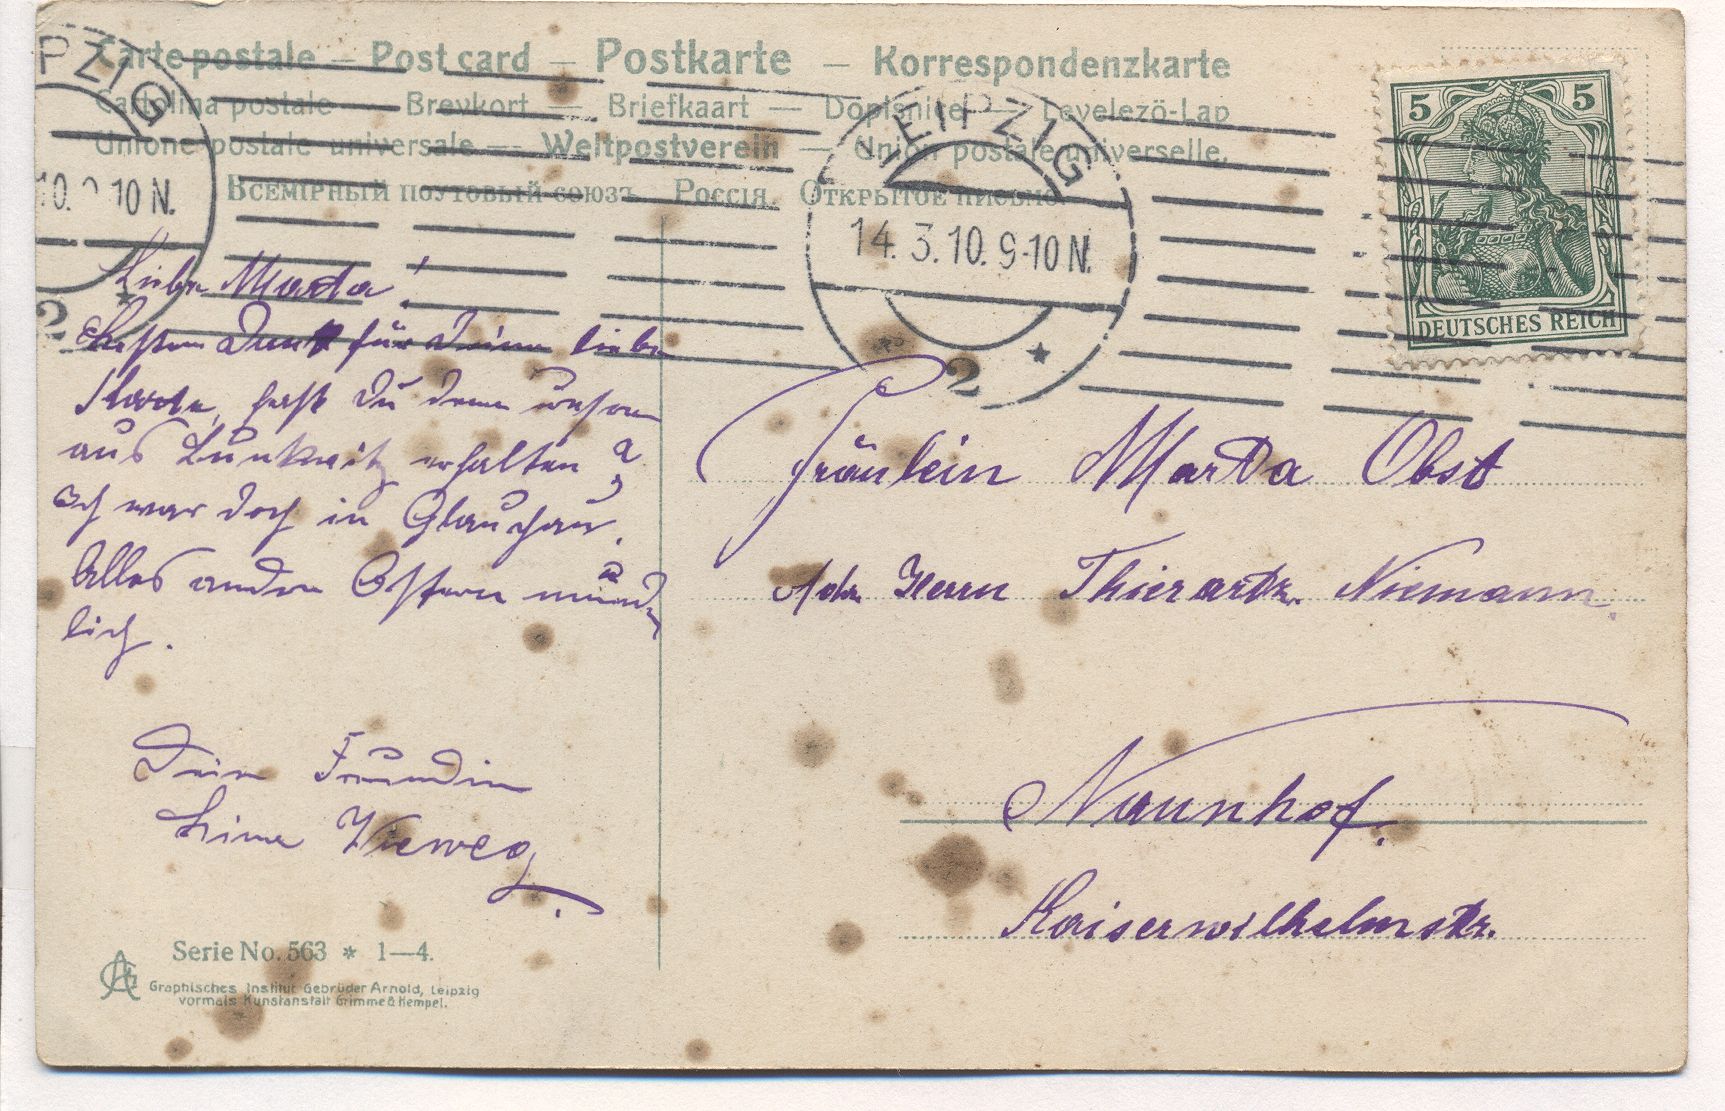 Carte postale — Post card — Postkarte — Korrespondenzkarte
Cartolina postale — Brevkort — Briefkaart — Dopisnice — Levelezö-Lap
Unione postale universale — Weltpostverein — Union postale universelle.
Всемірный почтовый союзъ. Россія. Открытое письмо.
PZIG
10. 10 N.
2
LEIPZIG
14. 3. 10. 9-10 N.
2
5 5
DEUTSCHES REICH
Liebe Marta!
Besten Dank für Deine liebe
Karte, hast Du denn unsere
aus Lunkwitz erhalten?
Ich war doch in Glauchau.
Alles andere Ostern münd-
lich.
Deine Freundin
Vieweg.
Fräulein Marta Obst
Adr. Herrn Thierarzt. Niemann.
Naunhof.
Kaiserwilhelmstr.
Serie No. 563 * 1—4.
Graphisches Institut Gebrüder Arnold, Leipzig
vormals Kunstanstalt Grimme & Hempel.